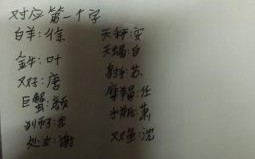 对应第一个字
白羊:徐
金牛:叶
双子:唐
巨蟹:颜
狮子:李
处女:谢
天秤:安
天蝎:白
射手:苏
摩羯:任
水瓶:萧
双鱼:湛